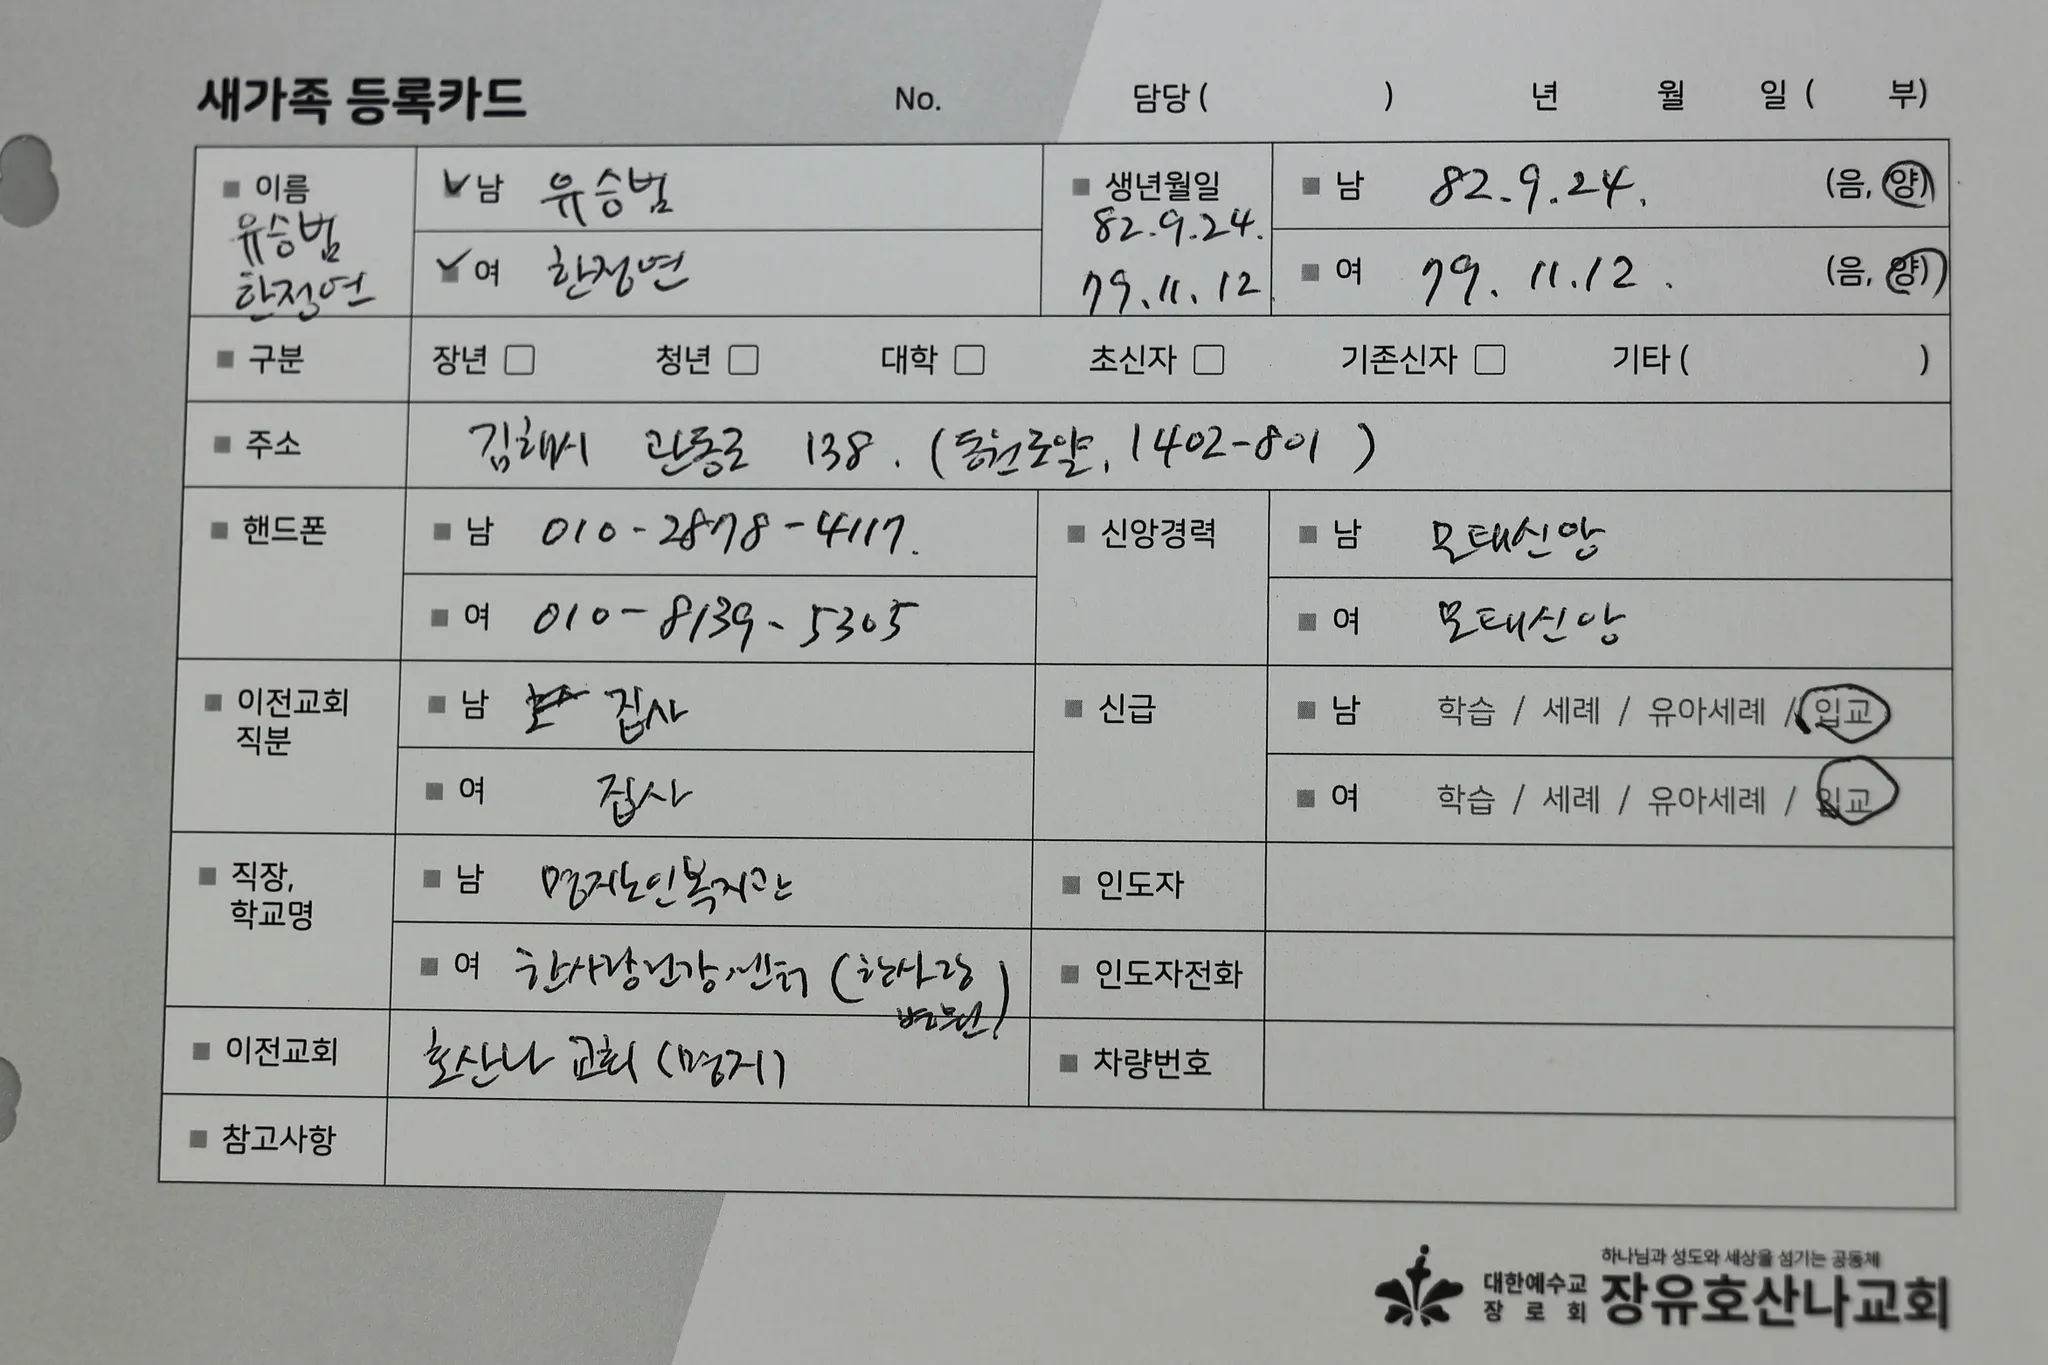 새가족 등록카드 No. 담당 ( ) 년 월 일 ( 부)
이름 남 유승범 생년월일 남 82.9.24. (음, 양)
유승범 82.9.24.
한정연 여 한정연 79.11.12 여 79.11.12. (음, 양)
구분 장년 청년 대학 초신자 기존신자 기타 ( )
주소 김해시 관동로 138. (동원로얄, 1402-801)
핸드폰 남 010-2878-4117. 신앙경력 남 모태신앙
여 010-8139-5305 여 모태신앙
이전교회 남 집사 신급 남 학습 / 세례 / 유아세례 / 입교
직분
여 집사 여 학습 / 세례 / 유아세례 / 입교
직장, 남 명지노인복지관 인도자
학교명
여 한사랑건강센터 (한사랑 인도자전화
병원)
이전교회 호산나 교회 (명지) 차량번호
참고사항
하나님과 성도와 세상을 섬기는 공동체
대한예수교
장로회 장유호산나교회